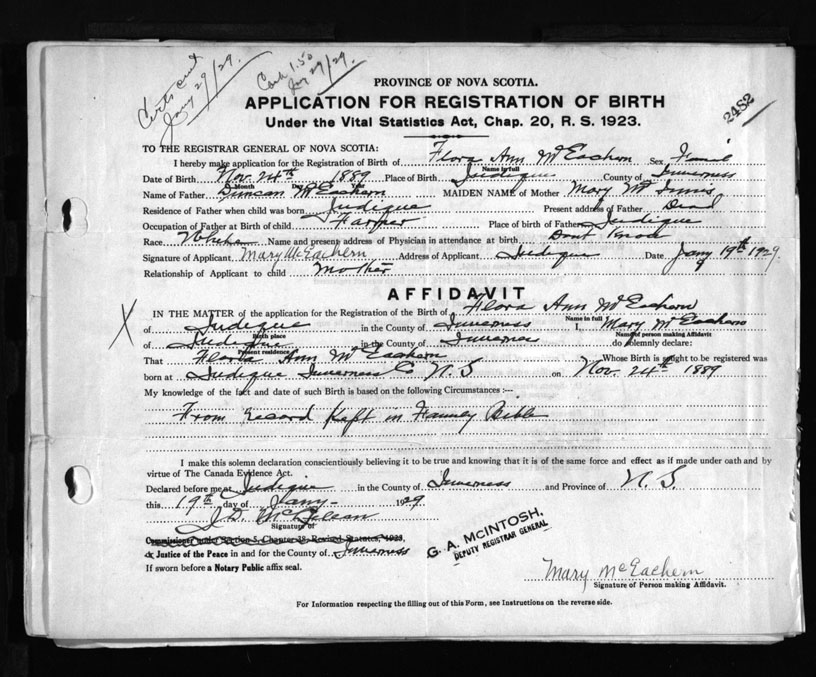 Certs sent
Jany 29/29.
Cash 1.50
Jany 29/29.
2482
PROVINCE OF NOVA SCOTIA.
APPLICATION FOR REGISTRATION OF BIRTH
Under the Vital Statistics Act, Chap. 20, R. S. 1923.
TO THE REGISTRAR GENERAL OF NOVA SCOTIA:
I hereby make application for the Registration of Birth of Flora Ann McEachern Sex
Name in full
Date of Birth Nov. 24th 1889 Place of Birth Judique County of Inverness
Month Day Year
Name of Father Duncan McEachern MAIDEN NAME of Mother Mary McInnis
Residence of Father when child was born Judique Present address of Father Dead
Occupation of Father at Birth of child Farmer Place of birth of Father Judique
Race White Name and present address of Physician in attendance at birth Dont Know
Signature of Applicant Mary McEachern Address of Applicant Judique Date Jany 19th 1929.
Relationship of Applicant to child Mother
AFFIDAVIT
IN THE MATTER of the application for the Registration of the Birth of Flora Ann McEachern
Name in full
of Judique in the County of Inverness I, Mary McEachern
Birth place Name of person making Affidavit
of Judique in the County of Inverness do solemnly declare:
Present residence
That Flora Ann McEachern Whose Birth is sought to be registered was
born at Judique Inverness Co N. S on Nov. 24th 1889
My knowledge of the fact and date of such Birth is based on the following Circumstances :—
From record Kept in Family Bible
I make this solemn declaration conscientiously believing it to be true and knowing that it is of the same force and effect as if made under oath and by
virtue of The Canada Evidence Act.
Declared before me at Judique in the County of Inverness and Province of N. S.
this 19th day of Jany 1929
Signature of
Commissioner under Section 5, Chapter 38, Revised Statutes, 1923,
or Justice of the Peace in and for the County of Inverness
If sworn before a Notary Public affix seal.
G. A. McINTOSH,
DEPUTY REGISTRAR GENERAL
Mary McEachern
Signature of Person making Affidavit.
For Information respecting the filling out of this Form, see Instructions on the reverse side.